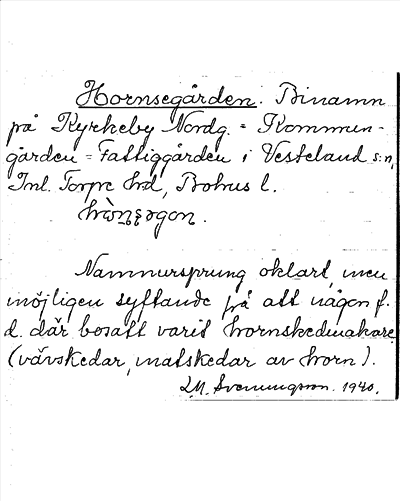 Hornsegården. Binamn
på Kyrkeby Nordg. = Kommun-
gården = Fattiggården i Vesteland s:n,
Inl. Torpe hd, Bohus l.

Namnursprung oklart, men
möjligen syftande på att någon f.
d. där bosatt varit hornskedmakare
(vävskedar, matskedar av horn).
Sveningson. 1940.